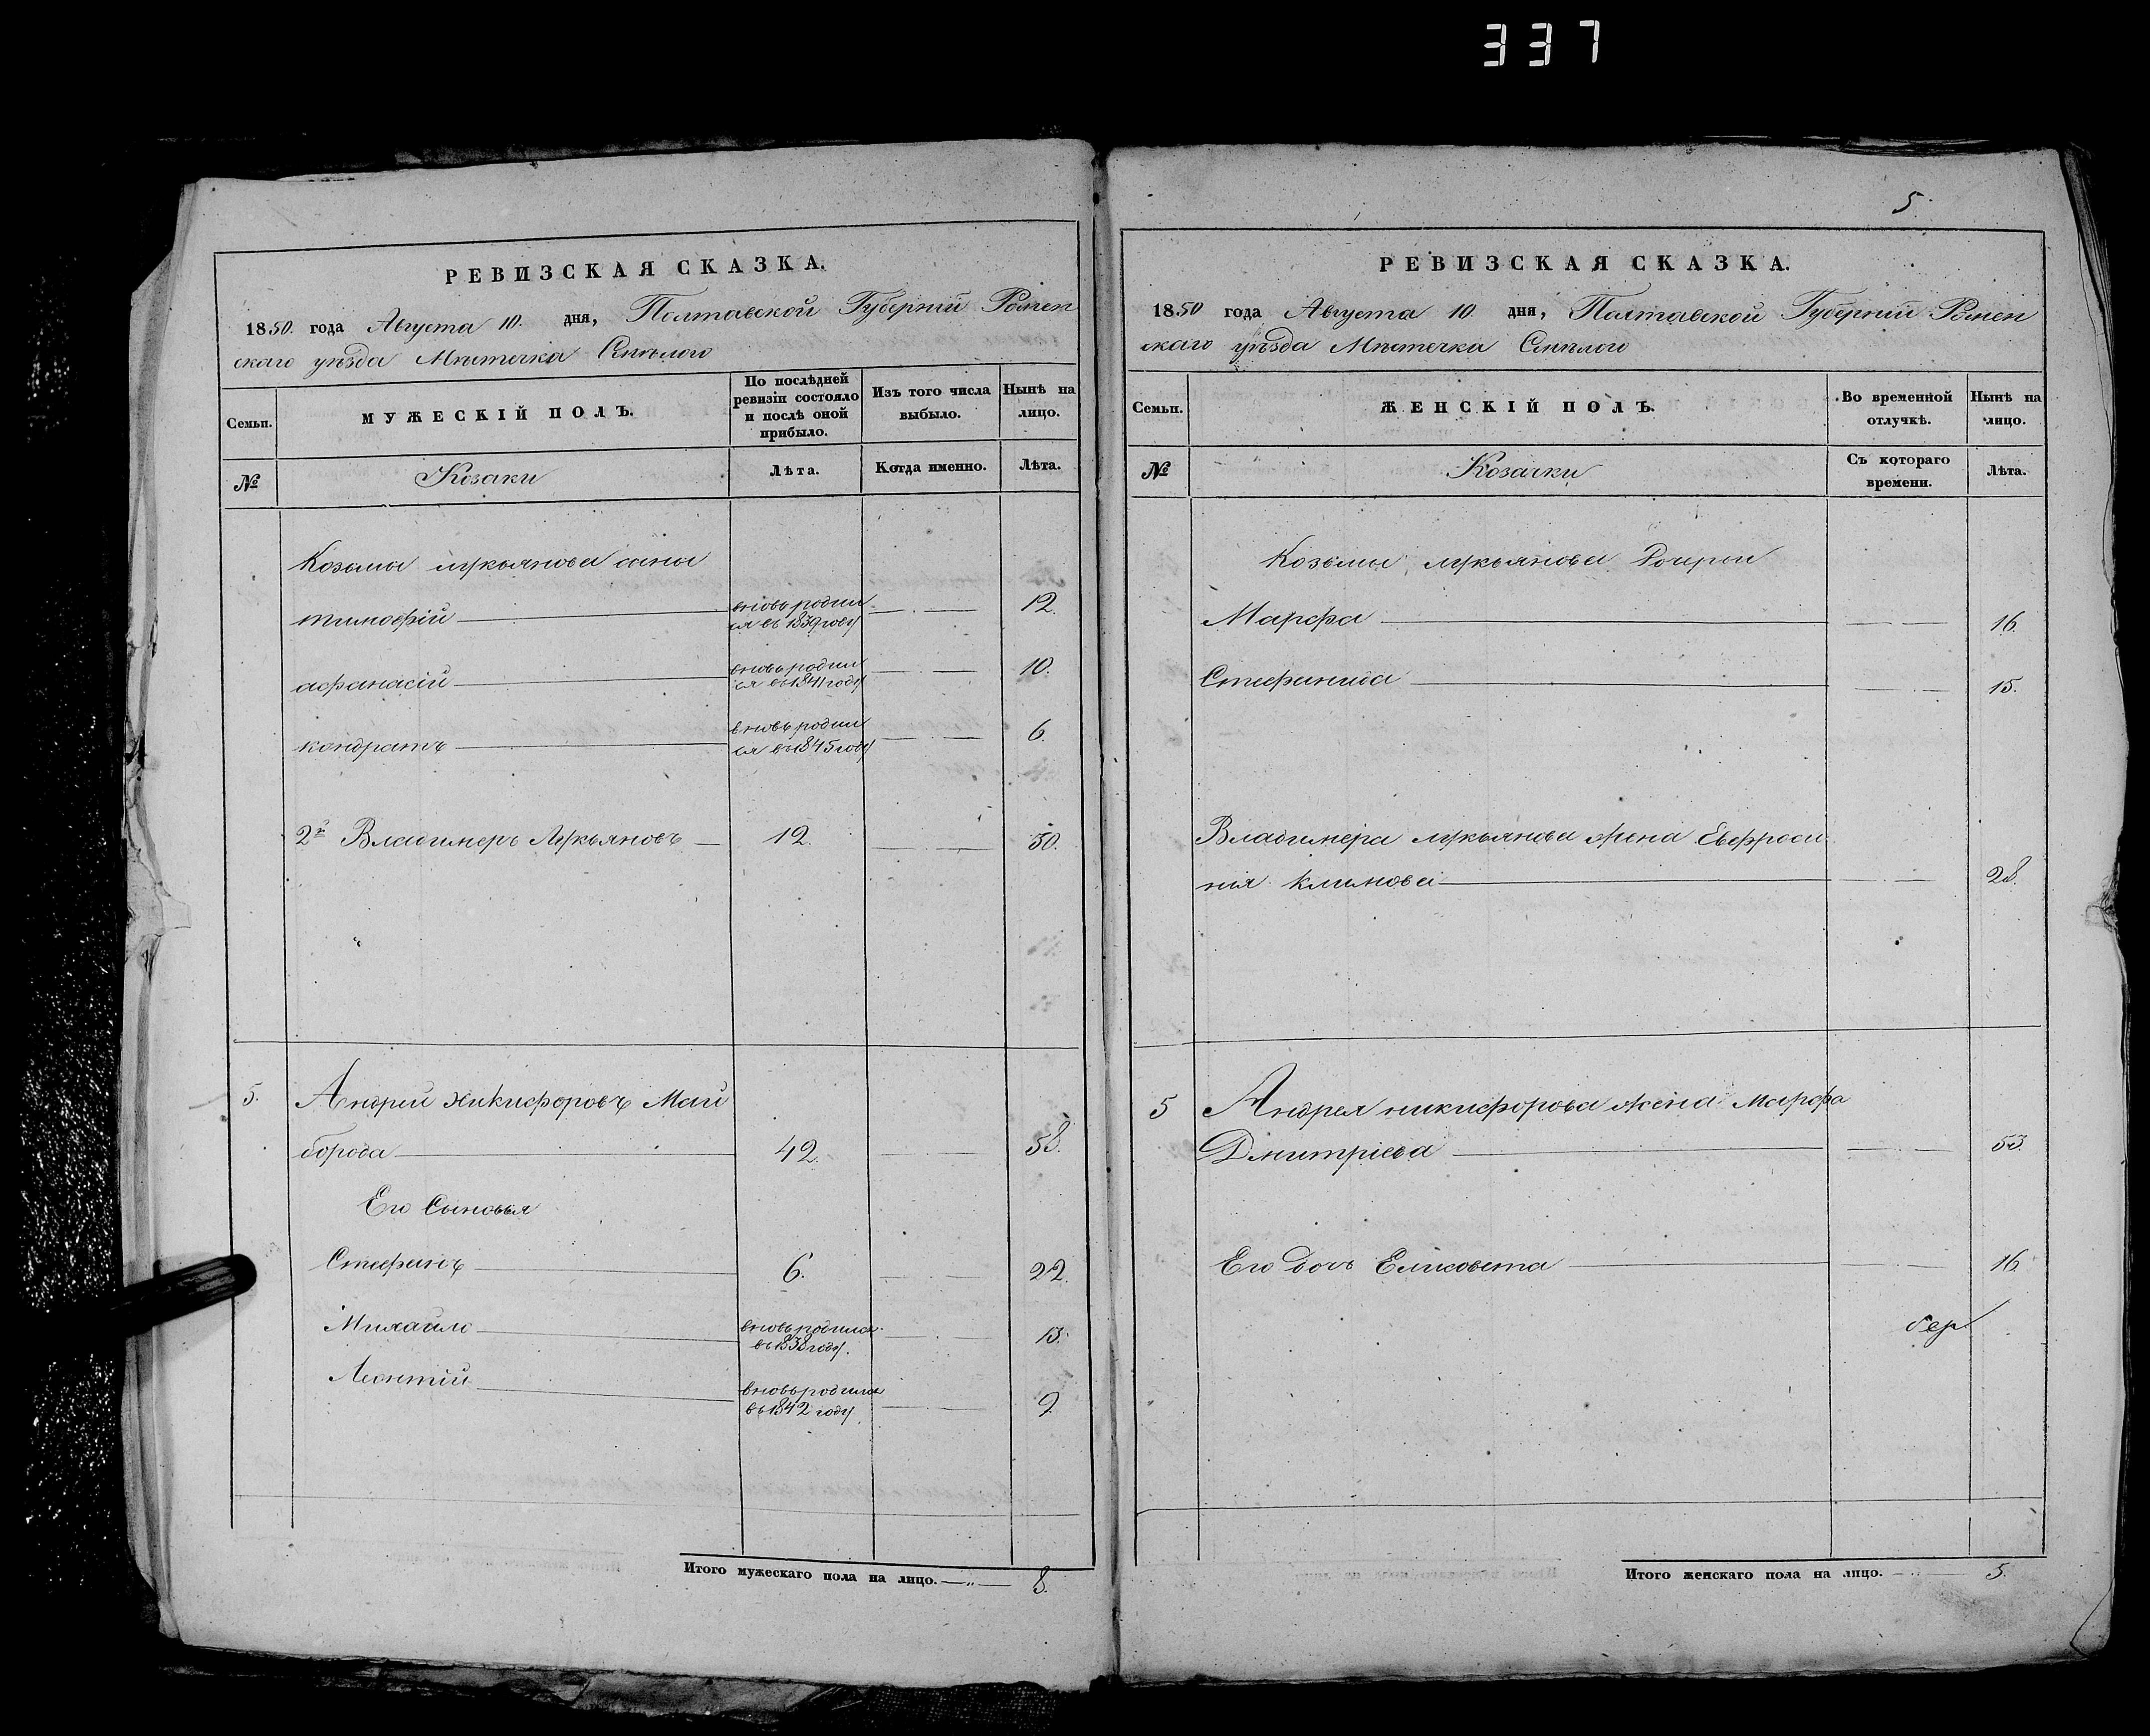 337
РЕВИЗСКАЯ СКАЗКА.
1850. года Августа 10. дня, Полтавской Губернiи Ромен
скаго уѣзда Мѣстечка Смѣлого
Семьи.
МУЖЕСКІЙ ПОЛЪ.
По послѣдней
ревизіи состояло
и послѣ оной
прибыло.
Изъ того числа
выбыло.
Нынѣ на
лицо.
№
Козаки
Лѣта.
Когда именно.
Лѣта.
Козьмы лукьянова сыны
тимофiй вновь родил 12.
ся въ 1839 году
афанасiй вновь родил 10.
ся въ 1841 году
кондратъ вновь родил 6.
ся въ 1845 году
2й Владимеръ Лукьяновъ 12. 50.
5. Андрей никифоровъ Май
борода 42. 58.
Его Сыновья
Стефанъ 6. 22.
Михайло вновь родился 13.
въ 1838 году.
Леонтiй вновь родился 9.
въ 1842 году.
Итого мужескаго пола на лицо. 8.
5.
РЕВИЗСКАЯ СКАЗКА.
1850 года Августа 10. дня, Полтавской Губернiи Ромен
скаго уѣзда Мѣстечка Смѣлого
Семьи.
ЖЕНСКІЙ ПОЛЪ.
Во временной
отлучкѣ.
Нынѣ на
лицо.
№
Козачки
Съ котораго
времени.
Лѣта.
Козьмы лукьянова Дочери
Марфа 16.
Стефанида 15.
Владимера лукьянова жена Евфроси
нiя климова 28.
5 Андрея никифорова жена Марфа
Дмитрiева 53.
Его дочь Елисовета 16
Итого женскаго пола на лицо. 5.